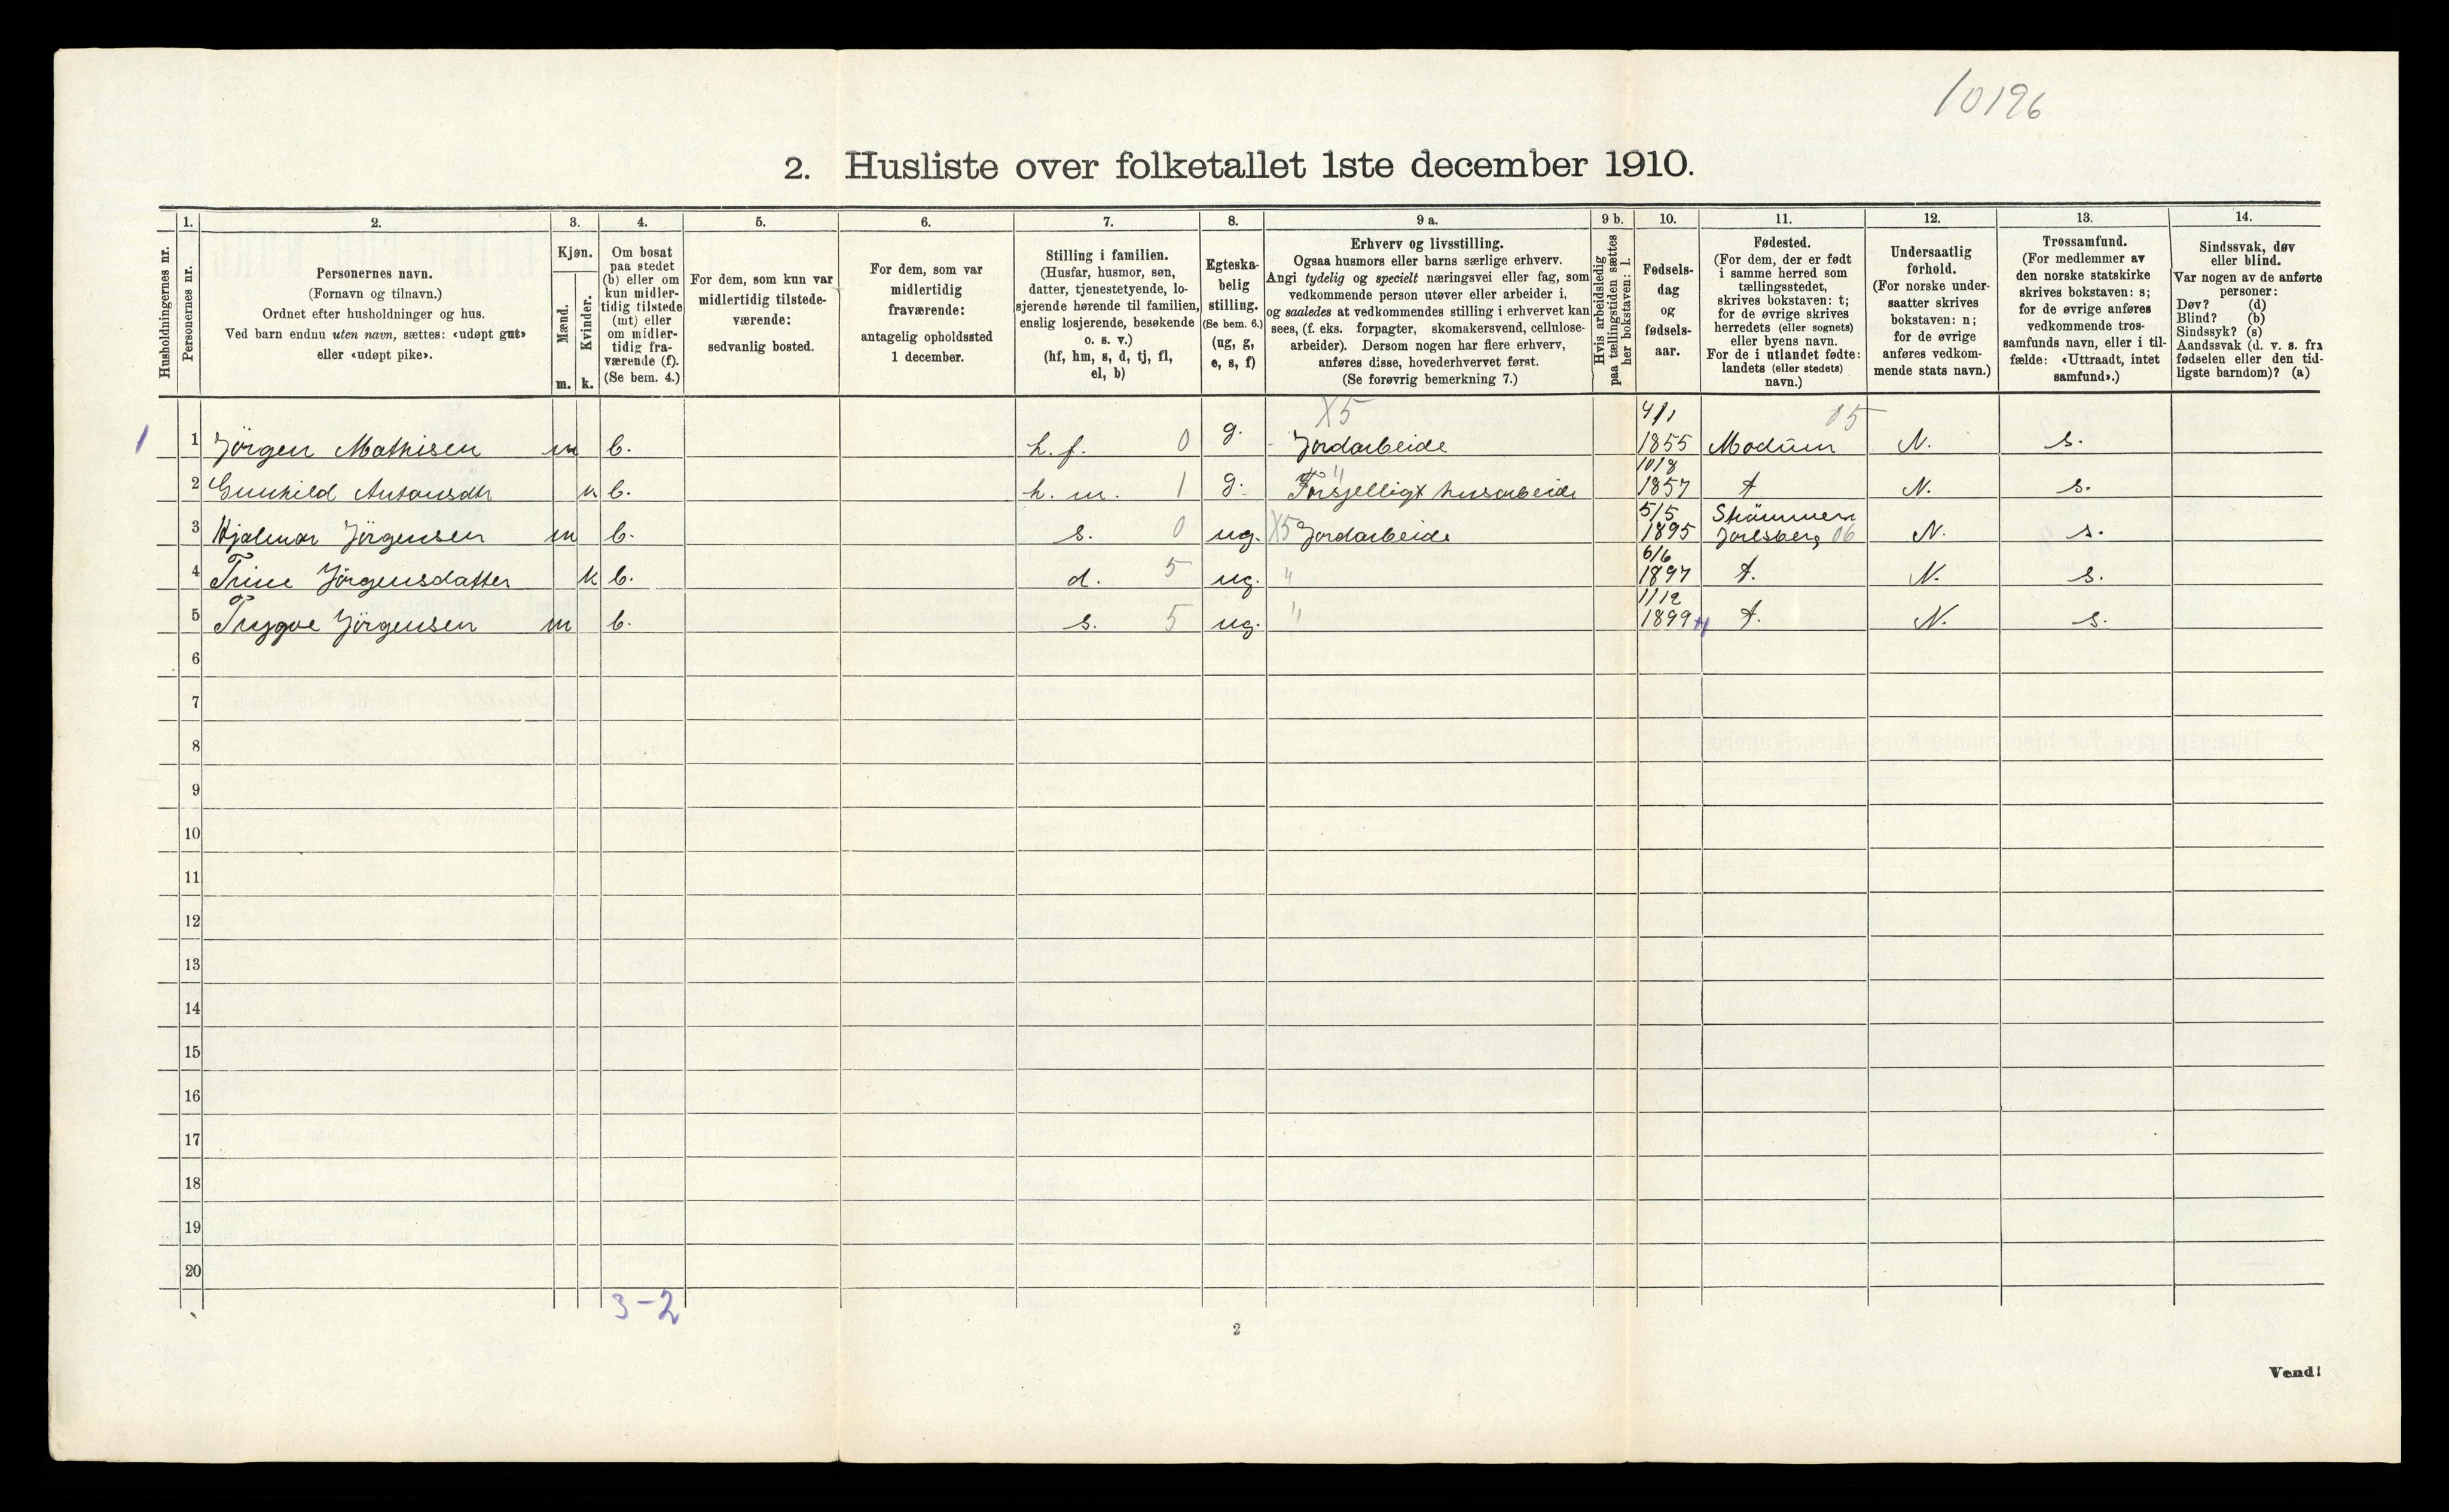 10196
2. Husliste over folketallet 1ste december 1910.
Husholdningernes nr.
1.
Personernes nr.
2.
Personernes navn.
(Fornavn og tilnavn.)
Ordnet efter husholdninger og hus.
Ved barn endnu uten navn, sættes: «udøpt gut»
eller «udøpt pike».
3.
Kjøn.
Mænd.
Kvinder.
m. k.
4.
Om bosat
paa stedet
(b) eller om
kun midler-
tidig tilstede
(mt) eller
om midler-
tidig fra-
værende (f).
(Se bem. 4.)
5.
For dem, som kun var
midlertidig tilstede-
værende:
sedvanlig bosted.
6.
For dem, som var
midlertidig
fraværende:
antagelig opholdssted
1 december.
7.
Stilling i familien.
(Husfar, husmor, søn,
datter, tjenestetyende, lo-
sjerende hørende til familien,
enslig losjerende, besøkende
o. s. v.)
(hf, hm, s, d, tj, fl,
el, b)
8.
Egteska-
belig
stilling.
(Se bem. 6.)
(ug, g,
e, s, f)
9 a.
Erhverv og livsstilling.
Ogsaa husmors eller barns særlige erhverv.
Angi tydelig og specielt næringsvei eller fag, som
vedkommende person utøver eller arbeider i,
og saaledes at vedkommendes stilling i erhvervet kan
sees, (f. eks. forpagter, skomakersvend, cellulose-
arbeider). Dersom nogen har flere erhverv,
anføres disse, hovederhvervet først.
(Se forøvrig bemerkning 7.)
9 b.
Hvis arbeidsledig
paa tællingstiden sættes
her bokstaven: l.
10.
Fødsels-
dag
og
fødsels-
aar.
11.
Fødested.
(For dem, der er født
i samme herred som
tællingsstedet,
skrives bokstaven: t;
for de øvrige skrives
herredets (eller sognets)
eller byens navn.
For de i utlandet fødte:
landets (eller stedets)
navn.)
12.
Undersaatlig
forhold.
(For norske under-
saatter skrives
bokstaven: n;
for de øvrige
anføres vedkom-
mende stats navn.)
13.
Trossamfund.
(For medlemmer av
den norske statskirke
skrives bokstaven: s;
for de øvrige anføres
vedkommende tros-
samfunds navn, eller i til-
fælde: «Uttraadt, intet
samfund».)
14.
Sindssvak, døv
eller blind.
Var nogen av de anførte
personer:
Døv? (d)
Blind? (b)
Sindssyk? (s)
Aandssvak (d. v. s. fra
fødselen eller den tid-
ligste barndom)? (a)
X5 4/1 15
1 1 Jörgen Mathisen m b. h. f. 0 g. Jordarbeide 1855 Modum N. s.
10/8
2 Gunhild Antonsdtr k b. h. m. 1 g. Forsjelligt husarbeide 1857 t N. s.
5/5 Strömmen
3 Hjalmar Jörgensen m b. s. 0 ug. X5 Jordarbeide 1895 Jarlsberg 06 N. s.
6/6
4 Trine Jörgensdatter k b. d. 5 ug. " 1897 t. N. s.
1/12
5 Trygve Jörgensen m b. s. 5 ug. " 1899 t. N. s.
6
7
8
9
10
11
12
13
14
15
16
17
18
19
20
3-2
2
Vend!